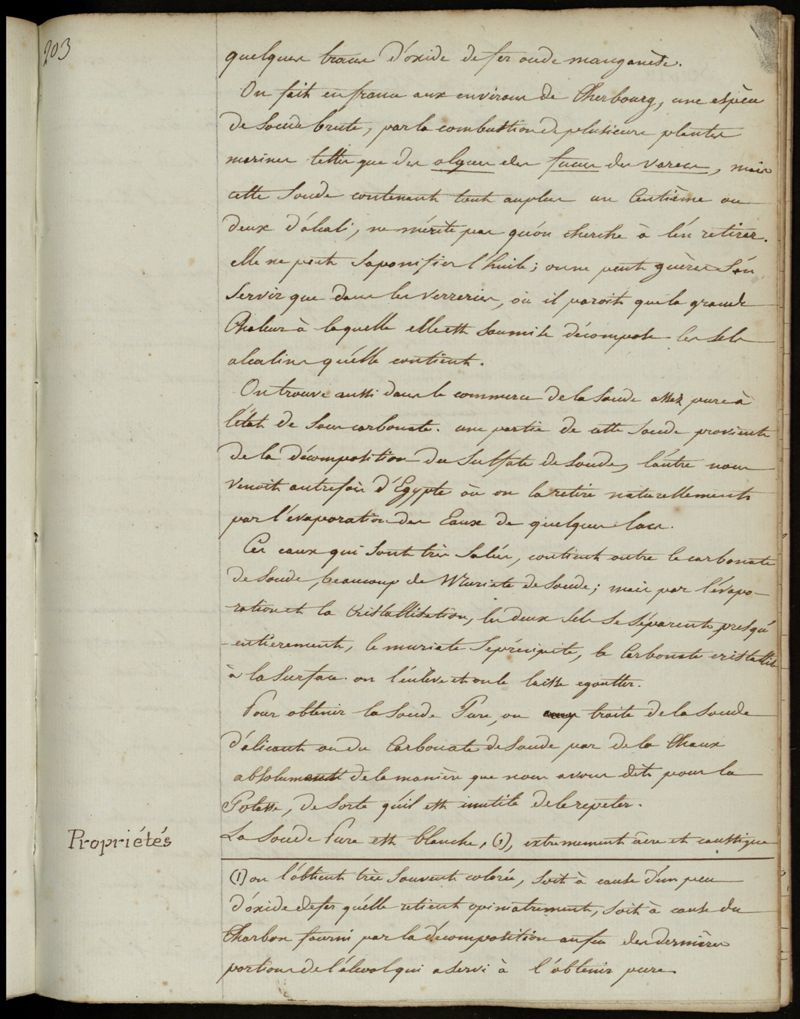 203
quelques traces d'oxide de fer ou de manganèse.
On fait en france aux environs de Cherbourg, une espèce
de Soude brute, par la combustion de plusieurs plantes
marines telles que des algues des fucus des varecs, mais
cette Soude contenant tout au plus un Centième ou
deux d'alcali, ne mérite pas qu'on cherche à l'en retirer.
elle ne peut Saponifier l'huile; on ne peut guères S'en
Servir que dans les verreries, où il paroit que la grande
Chaleur à laquelle elle est Soumise décompose les sels
alcalins qu'elle contient.
On trouve aussi dans le commerce de la Soude assez pure à
l'état de Sous carbonate. une partie de cette Soude provient
de la décomposition du Sulfate de Soude, l'autre nous
venoit autrefois d'Egypte où on la retire naturellement
par l'évaporation des Eaux de quelques lacs.
Ces eaux qui Sont très Salées, contient outre le carbonate
de Soude, beaucoup de Muriate de Soude; mais par l'évapo-
ration et la Cristallisation, les deux Sels Se Séparent presqu'
-entièrement, le muriate Se précipite, le Carbonate cristallise
à la Surface on l'enlève et on le laisse egoutter.
Pour obtenir la Soude Pure, on traite de la Soude
d'alicant ou du Carbonate de Soude par de la Chaux
absolument de la manière que nous avons dit pour la
Potasse, de Sorte qu'il est inutile de le repeter.
Propriétés
La Soude Pure est blanche, (1), extremement âcre et caustique
(1) on l'obtient très Souvent colorée, Soit à cause d'un peu
d'oxide de fer qu'elle retient opiniatrement, Soit à cause du
Charbon fourni par la décomposition au feu des dernières
portions de l'alcool qui a servi à l'obtenir pure